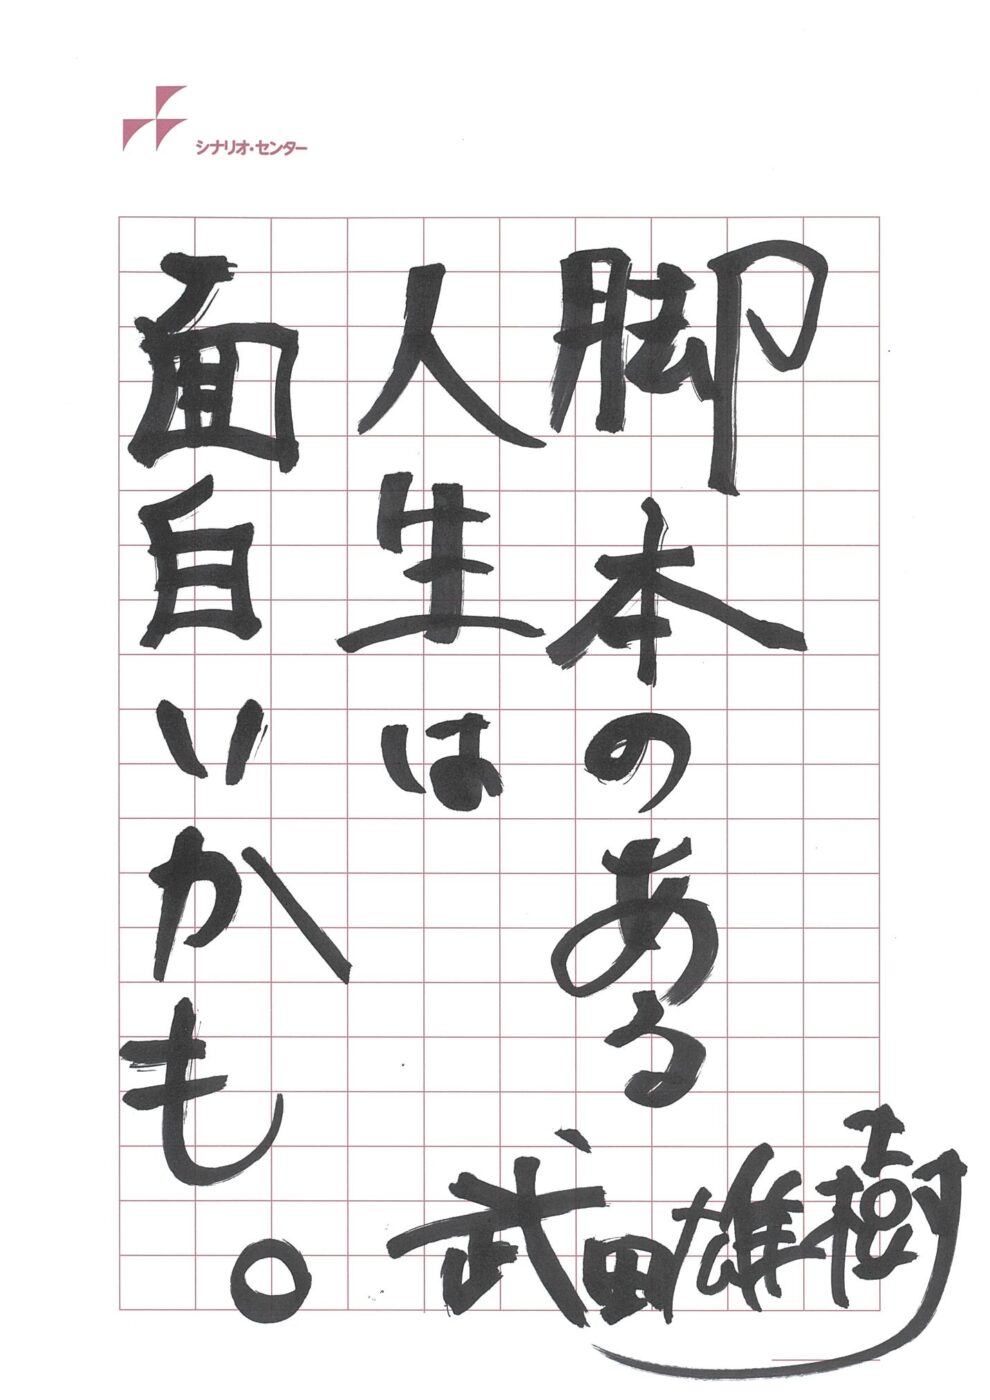 シナリオ・センター
脚本のある
人生は
面白いかも。
武田雄樹